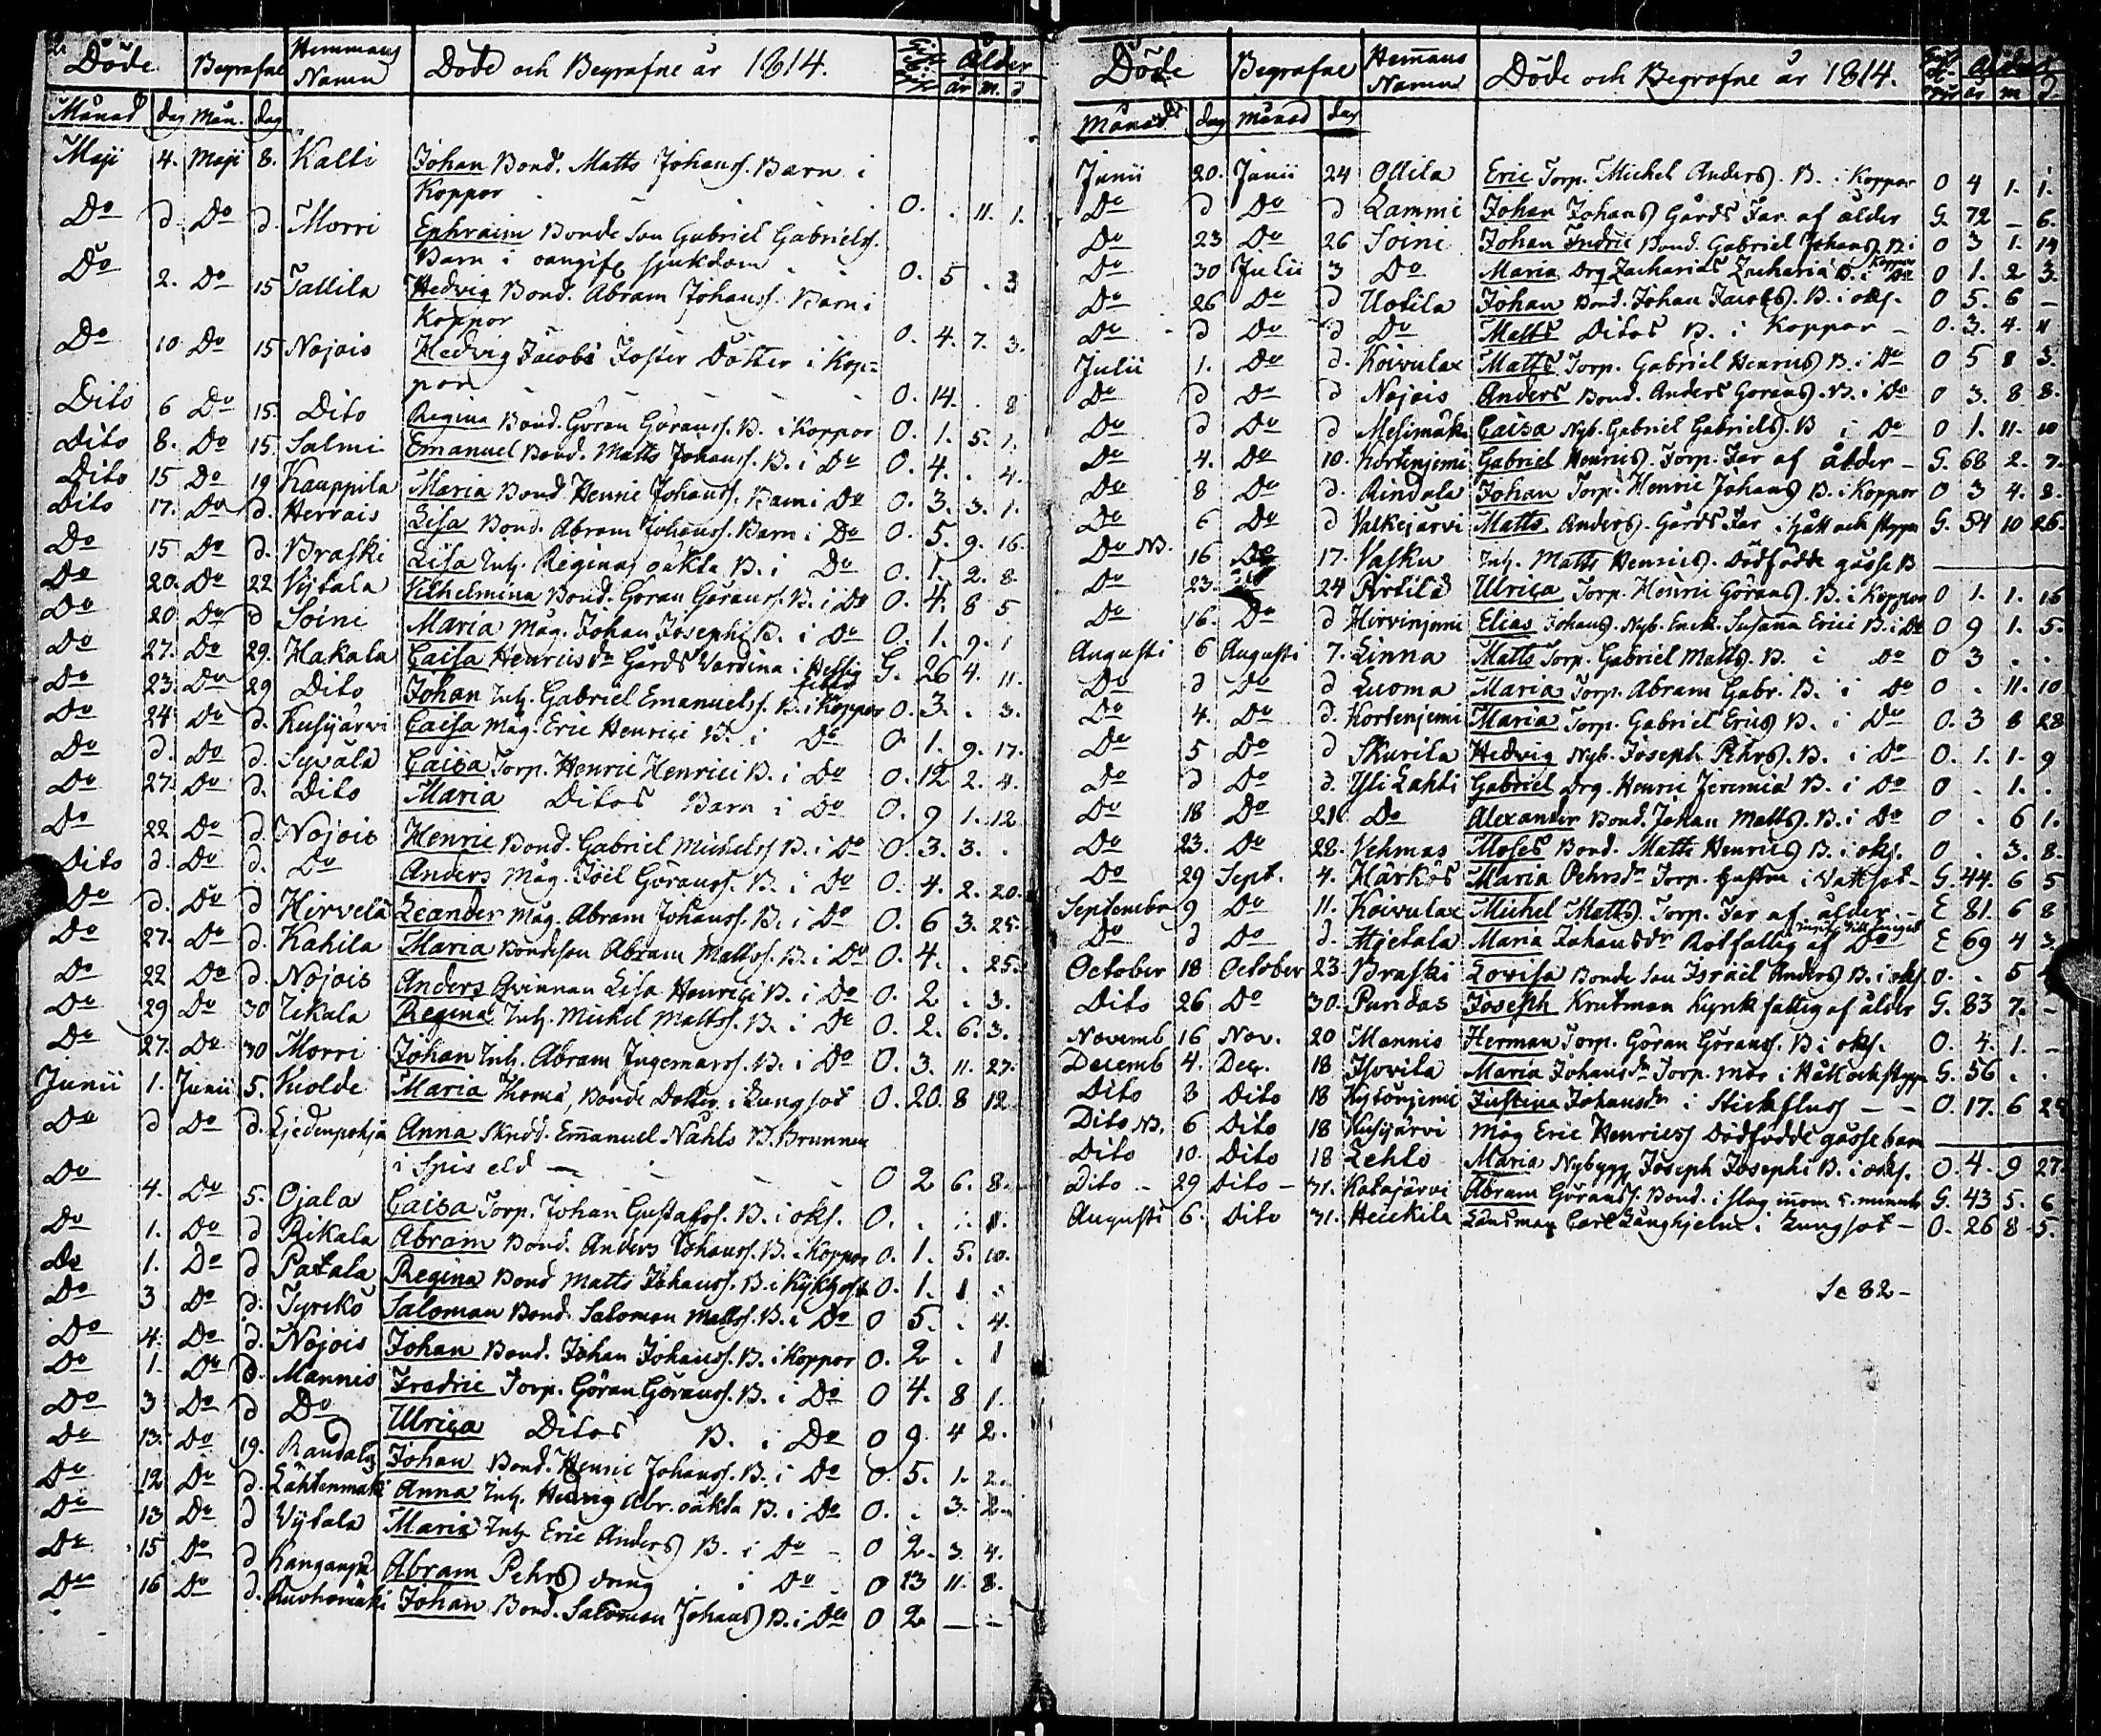 Döde Begrafne Hemmans Namn Döde och Begrafne år 1814. Ålder
år m. d
Månad dag Mån. dag
Maji 4. Maji 8. Kalli Johan Bond. Matts Johanss. Barn i
Koppor 0. . 11. 1.
Do d. Do d. Morri Ephraim Bonde Son Gabriel Gabrielss.
Barn i oangifv sjukdom 0. 5 . 3
Do 2. Do 15 Tallila Hedvig Bond. Abram Johanss. Barn i
Koppor 0. 4. 7. 3.
Do 10 Do 15 Nojois Hedvig Jacobs Foster Dotter i Kop=
por 0. 14. . 8
Dito 6 Do 15. Dito Regina Bond. Göran Göranss. B. i Koppor 0. 1. 5. 1.
Dito 8. Do 15 Salmi Emanuel Bond. Matts Johanss. B. i Do 0. 4. . 4.
Dito 15 Do 19 Kauppila Maria Bond Henric Johanss. Barn i Do 0. 3. 3. 1.
Dito 17. Do d. Herrais Lisa Bond. Abram Johanss. Barn i Do 0. 5. 9. 16.
Do 15 Do d. Braski Lisa Inh. Reginas oäkta B. i Do 0. 1. 2. 8.
Do 20. Do 22 Vytala Vilhelmina Bond. Göran Göranss. B. i Do 0. 4. 8 5
Do 20 Do d Soini Maria Måg. Johan Josephi B. i Do 0. 1. 9. 1
Do 27. Do 29. Hakala Caisa Henricsdr Gårds Vardina i Hessig feber G. 26 4. 11.
Do 23. Do 29 Dito Johan Inh. Gabriel Emanuelss. B. i Koppor 0. 3. . 3.
Do 24 Do d. Kusijärvi Caisa Måg. Eric Henrici B. i Do 0. 1. 9. 17.
Do d. Do d. Syvälä Caisa Torp. Henric Henrici B. i Do 0. 12 2. 4.
Do 27. Do d. Dito Maria Ditos Barn i Do 0. 9 1. 12
Do 22 Do d. Nojois Henric Bond. Gabriel Michelss B. i Do 0. 3. 3. .
Dito d. Do d. Do Anders Måg. Joel Göranss. B. i Do 0. 4. 2. 20.
Do d. Do d Hirvelä Leander Måg. Abram Johanss. B. i Do 0. 6 3. 25.
Do 27. Do d. Kahila Maria Bondeson Abram Mattss. B. i Do 0. 4. . 25.
Do 22 Do d. Nojois Anders Qvinnan Lisa Henrici B. i Do 0. 2 . 3.
Do 29 Do 30 Tekala Regina Inh. Michel Mattss. B. i Do 0. 2. 6. 3.
Do 27. Do 30 Morri Johan Inh. Abram Ingemarss. B. i Do 0. 3. 11. 27.
Junii 1. Junii 5. Kuolde Maria Thomæ, Bonde Dotter i Lungsot 0. 20. 8 12
Do d Do d. Ljedenpohja Anna Skrädd. Emanuel Nahls B. Brunnen
i Spis eld 0 2 6. 8.
Do 4. Do 5. Ojala Caisa Torp. Johan Gustafss. B. i oks. 0. . . 11.
Do 1. Do d Rikala Abram Bond. Anders Johanss. B. i Koppor 0. 1. 5. 10.
Do 1. Do d Patala Regina Bond Matts Johanss. B. i Kykhosta 0. 1. 1 .
Do 3 Do d. Tyrckö Saloman Bond. Saloman Mattss. B. i Do 0 5. . 4.
Do 4. Do d. Nojois Johan Bond. Johan Johanss. B. i Koppor 0. 2 . 1
Do 1. Do d. Mannis Fredric Torp. Göran Göranss. B. i Do 0 4. 8 1.
Do 3 Do d Do Ulrica Ditos B. i Do 0 9. 4 2.
Do 13. Do 19. Randala Johan Bond. Henric Johanss. B. i Do 0. 5. 1. 2.
Do 12 Do d. Lähtenmäki Anna Inh. Abr. oäkta B. i Do 0. . 3. 2.
Do 13 Do d Vytala Maria Inh. Eric Anders B. i Do 0 2. 3. 4.
Do 15 Do d Abram Pehrs dräng i Do 0 13 11. 8.
Do 16 Do d. Ruohomäki Johan Bond. Saloman Johans B. i Do 0 2 — —
Döde Begrafne Hemans Namn Döde och Begrafne år 1814. Ålder
år m d.
Månad dag Månad dag
Junii 20. Junii 24 Ollila Eric Torp. Michel Anders. B. i Koppor 0 4 1. 1.
Do d Do d Lammi Johan Johans Gårds Far af ålder G. 72 — 6.
Do 23 Do 26 Soini Johan Indric Bond. Gabriel Johans B. i Koppor 0 3 1. 14
Do 30 Julii 3 Do Maria Drg Zacharias Zachariæ B. i Do 0 1. 2 3.
Do 26 Do d Uotila Johan Bond. Johan Jacobs. B. i oks. 0 5. 6 —
Do d Do d Do Matts Ditos B. i Koppor 0. 3. 4. 11
Julii 1. Do d. Koivulax Matts Torp. Gabriel Henrics B. i Do 0 5 8 3.
Do d Do d Nojois Anders Bond. Anders Görans. B. i Do 0 3. 8 8.
Do d Do d Mesimäki Caisa Nyb. Gabriel Gabriels. B i Do 0 1. 11. 10
Do 4. Do 10. Kortenjemi Gabriel Henrics. Torp. Far af ålder G. 68 2. 7.
Do 8 Do d. Rindala Johan Torp. Henric Johans B. i Koppor 0 3 4. 8.
Do 6 Do d Valkejärvi Matts Anders. Gårds Far i håll och stygn G. 54 10 26.
Do NB. 16 Do 17. Vasku Inh. Matts Henrics. Dödfödde gosse B
Do 23. 24 Pirtilä Ulrica Torp. Henric Görans. B. i Koppor 0 1. 1. 16
Do 16. Do d Hirvinjemi Elias Johans. Nyb. Enck. Susanna Erici B. i Do 0 9 1. 5.
Augusti 6 Augusti 7. Linna Matts Torp. Gabriel Matts. B. i Do 0 3 . .
Do d Do d Luoma Maria Torp. Abram Gabr. B. i Do 0 . 11. 10
Do 4. Do d. Kortenjemi Maria Torp. Gabriel Erics B. i Do 0. 3 8 28
Do 5 Do d Skurila Hedvig Nyb. Joseph Pehrs. B. i Do 0. 1. 1. 9
Do d Do d. Yli Lahti Gabriel Drg. Henric Jeremiæ B. i Do 0 . 1. .
Do 18 Do 21 Do Alexander Bond. Johan Matts. B. i Do 0 . 6 1.
Do 23. Do 28. Vehmas Moses Bond. Matts Henrics B. i oks. 0 . 3. 8.
Do 29 Sept. 4. Härkös Maria Pehrsdr Torp. hustru i Vattsot G. 44. 6 5
Septembr 9 Do 11. Koivulax Michel Matts. Torp. Far af ålder E 81. 6 8
Do d Do d. Hjetala Maria Johansdr Rotfattig af Do E 69 4 3.
October 18 October 23. Braski Lovisa Bonde Son Israel Anders B. i oks. 0. . 5
Dito 26 Do 30. Pundas Joseph Krutman Kyrk fattig af ålder G. 83 7. —
Novemb 16 Nov. 20 Mannis Herman Torp. Göran Göranss. B i oks. 0. 4. 1. —
Decemb 4. Dec. 18 Isovila Maria Johansdr Torp. Mor i Håll och stygn G. 56 .
Dito 3 Dito 18 Kytönjemi Justina Johansdr i Stickfluss 0. 17. 6 25
Dito NB. 6 Dito 18 Kusijärvi Måg Eric Henricss Dödfödde gosse barn
Dito 10. Dito 18 Lehto Maria Nybygg Joseph Josephi B. i oks. 0. 4. 9 27.
Dito 29 Dito 31. Katajärvi Abram Göranss. Bond. i slag inom 5. minuter G. 43 5. 6
Augusti 6. Dito 31. Heickilä Länsman Carl Långhjelm i Lungsot 0. 26 8 5.
Sa 82 –